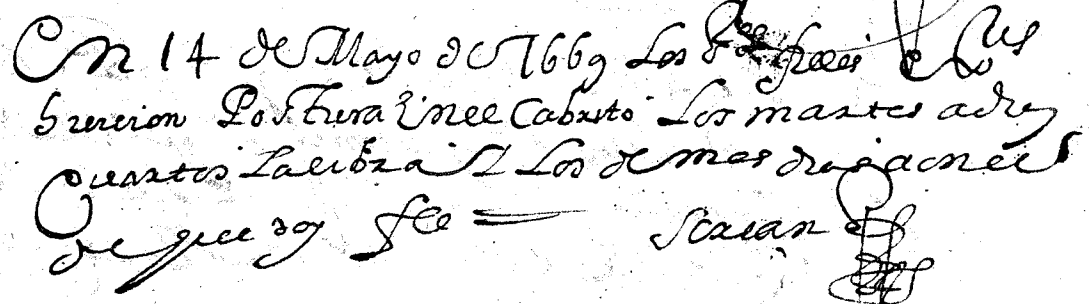 En 14 de Mayo de 1669 Los Sres fieles
hicieron Postura Enel Cabrito Los martes adiez
quartos la libra Y Los demas dias aonce
de que doy fee